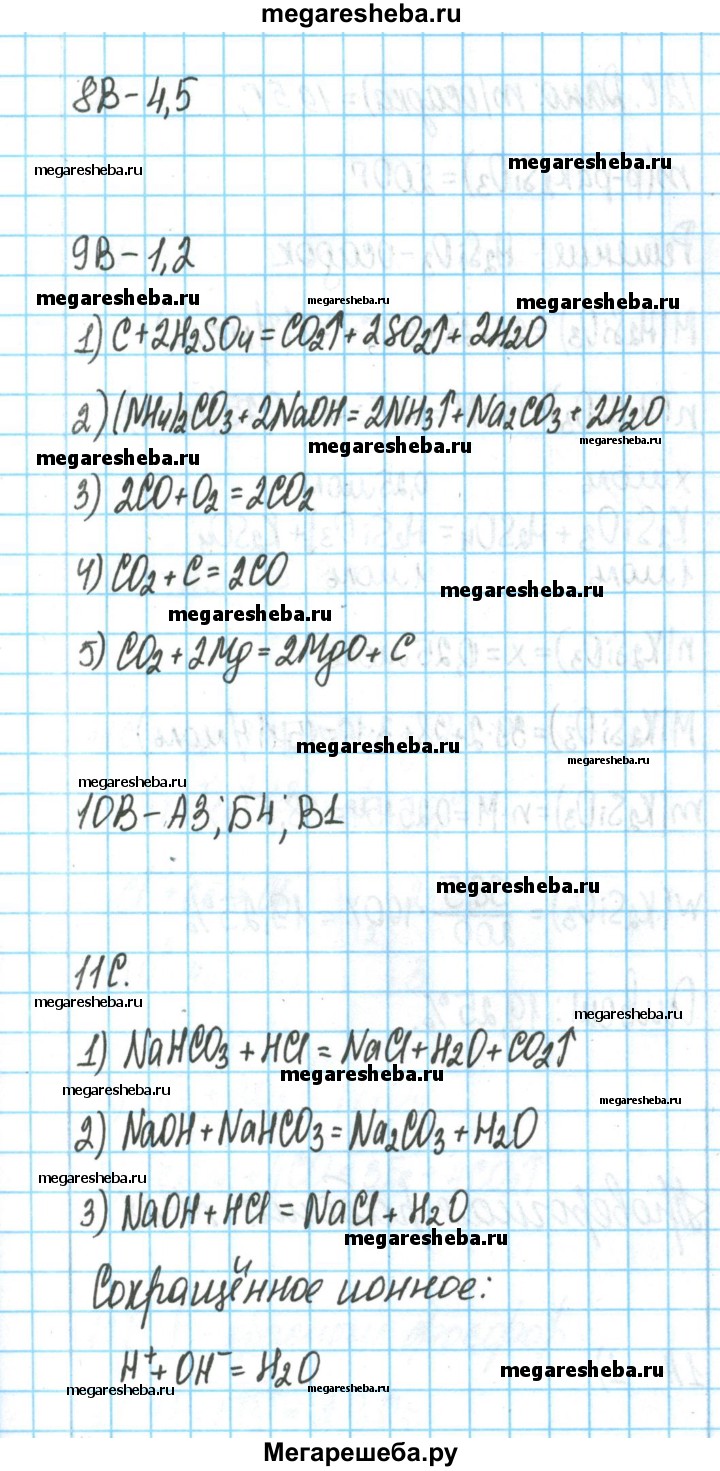 megaresheba.ru
8В – 4,5
megaresheba.ru
megaresheba.ru
9В – 1,2
megaresheba.ru
megaresheba.ru
megaresheba.ru
1) C + 2H₂SO₄ = CO₂↑ + 2SO₂↑ + 2H₂O
2) (NH₄)₂CO₃ + 2NaOH = 2NH₃↑ + Na₂CO₃ + 2H₂O
megaresheba.ru
megaresheba.ru
megaresheba.ru
3) 2CO + O₂ = 2CO₂
4) CO₂ + C = 2CO
megaresheba.ru
megaresheba.ru
5) CO₂ + 2Mg = 2MgO + C
megaresheba.ru
megaresheba.ru
megaresheba.ru
10В – А3; Б4; В1
megaresheba.ru
11С.
megaresheba.ru
megaresheba.ru
1) NaHCO₃ + HCl = NaCl + H₂O + CO₂↑
megaresheba.ru
megaresheba.ru
megaresheba.ru
2) NaOH + NaHCO₃ = Na₂CO₃ + H₂O
megaresheba.ru
3) NaOH + HCl = NaCl + H₂O
megaresheba.ru
Сокращённое ионное:
H⁺ + OH⁻ = H₂O
megaresheba.ru
megaresheba.ru
megaresheba.ru
Мегарешеба.ру